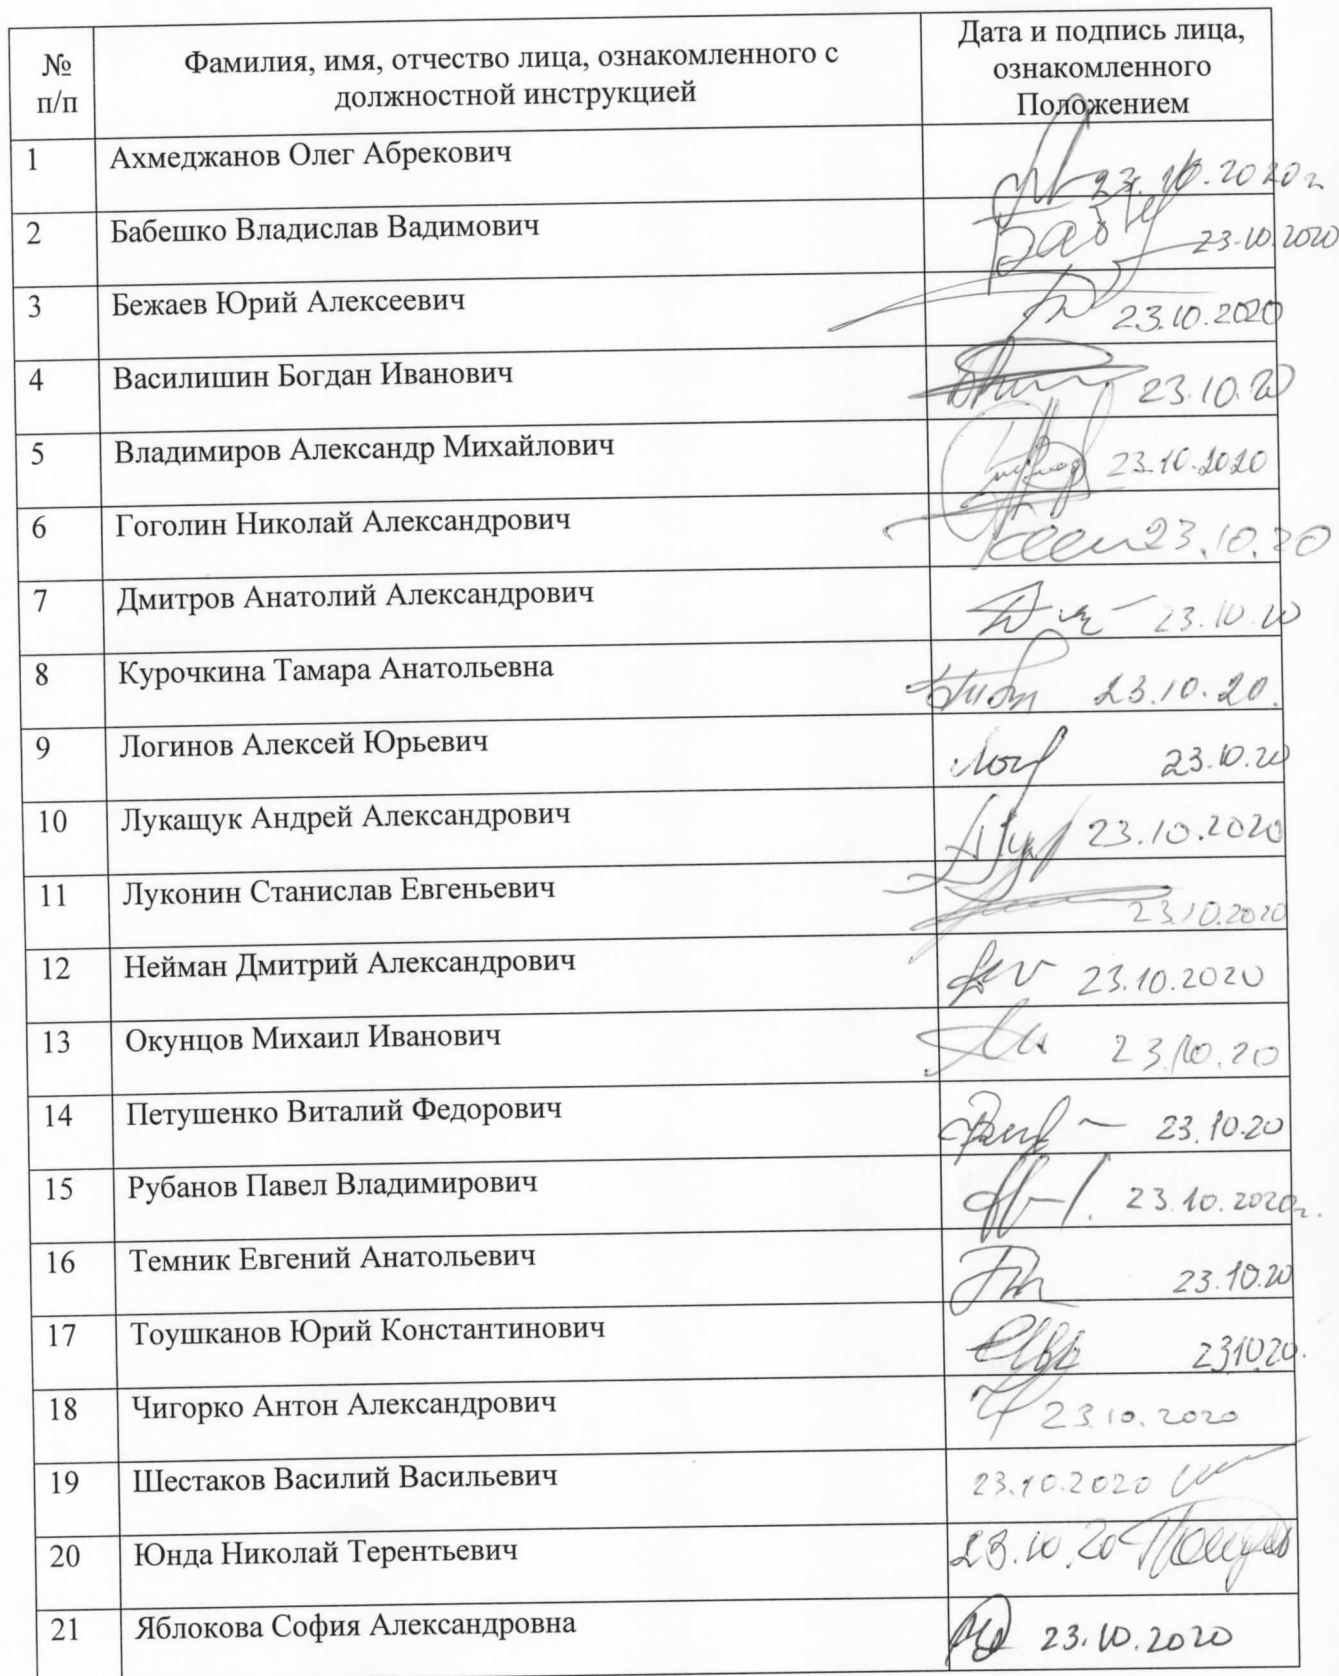 № п/п
Фамилия, имя, отчество лица, ознакомленного с
должностной инструкцией
Дата и подпись лица,
ознакомленного
Положением
1 Ахмеджанов Олег Абрекович 23.10.2020г
2 Бабешко Владислав Вадимович 23.10.2020
3 Бежаев Юрий Алексеевич 23.10.2020
4 Василишин Богдан Иванович 23.10.20
5 Владимиров Александр Михайлович 23.10.2020
6 Гоголин Николай Александрович 23.10.20
7 Дмитров Анатолий Александрович 23.10.20
8 Курочкина Тамара Анатольевна 23.10.20.
9 Логинов Алексей Юрьевич 23.10.20
10 Лукащук Андрей Александрович 23.10.2020
11 Луконин Станислав Евгеньевич 23.10.2020
12 Нейман Дмитрий Александрович 23.10.2020
13 Окунцов Михаил Иванович 23.10.20
14 Петушенко Виталий Федорович 23.10.20
15 Рубанов Павел Владимирович 23.10.2020г.
16 Темник Евгений Анатольевич 23.10.20
17 Тоушканов Юрий Константинович 231020.
18 Чигорко Антон Александрович 23.10.2020
19 Шестаков Василий Васильевич 23.10.2020
20 Юнда Николай Терентьевич 23.10.20
21 Яблокова София Александровна 23.10.2020